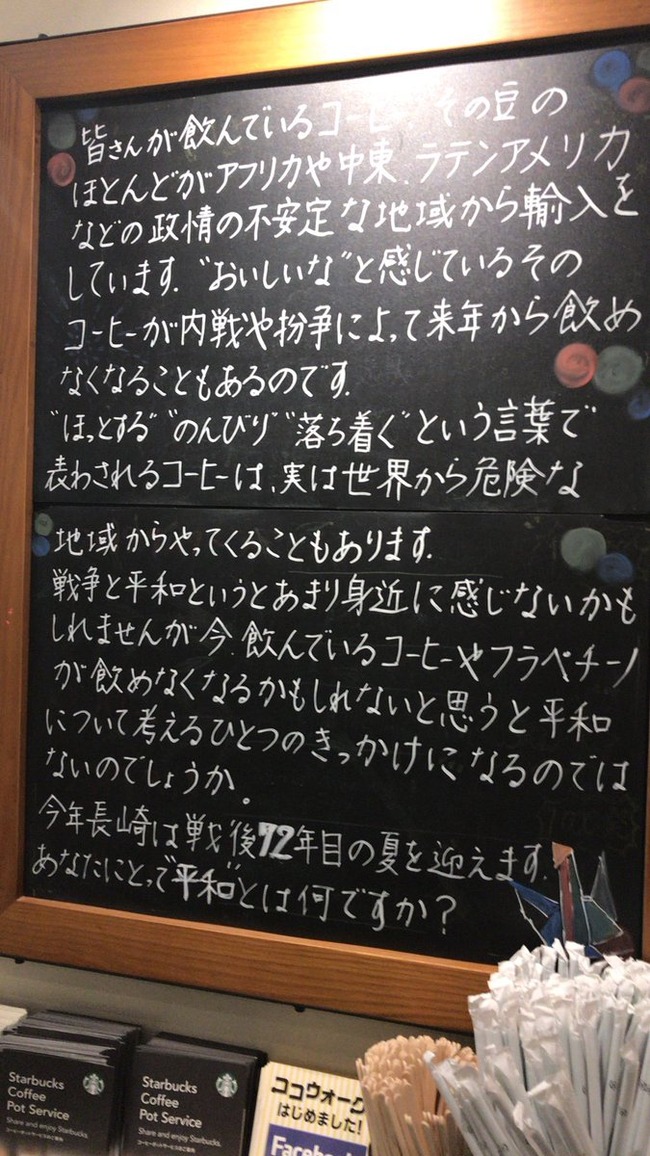 皆さんが飲んでいるコーヒー その豆の
ほとんどがアフリカや中東、ラテンアメリカ
などの政情の不安定な地域から輸入を
しています。"おいしいな"と感じているその
コーヒーが内戦や紛争によって来年から飲め
なくなることもあるのです。
"ほっとする" "のんびり" "落ち着く"という言葉で
表わされるコーヒーは、実は世界から危険な
地域からやってくることもあります。
戦争と平和というとあまり身近に感じないかも
しれませんが今、飲んでいるコーヒーやフラペチーノ
が飲めなくなるかもしれないと思うと平和
について考えるひとつのきっかけになるのでは
ないのでしょうか。
今年長崎は戦後72年目の夏を迎えます。
あなたにとって"平和"とは何ですか?
Starbucks
Coffee
Pot Service
Share and enjoy Starbucks.
コーヒーポットサービスのご案内
Starbucks
Coffee
Pot Service
Share and enjoy Starbucks.
コーヒーポットサービスのご案内
ココウォーク
はじめました!
Facebook